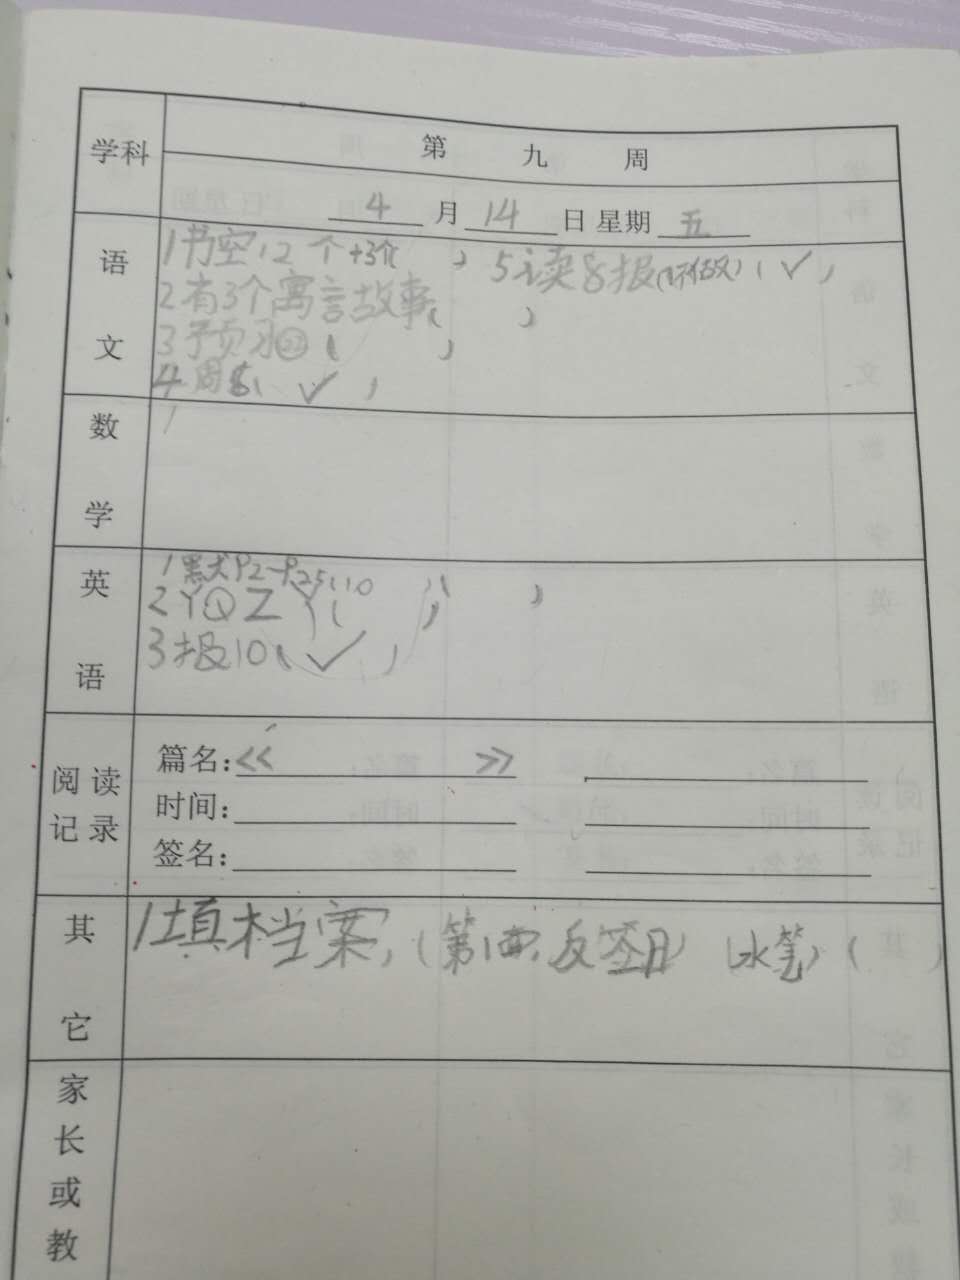 学科 第 九 周
4 月 14 日 星期 五
语文
1书空12个+3个( ) 5读8报( ✓ )
2有3个寓言故事( )
3予页习㉒( )
4周 ( ✓ )
数学
1
英语
1默犬P2-P25 10 ( )
2YQZ ( )
3报10( ✓ )
阅读记录
篇名:<< >>
时间:
签名:
其它
1填档案,(第1面,反签日) (水笔) ( )
家长或教